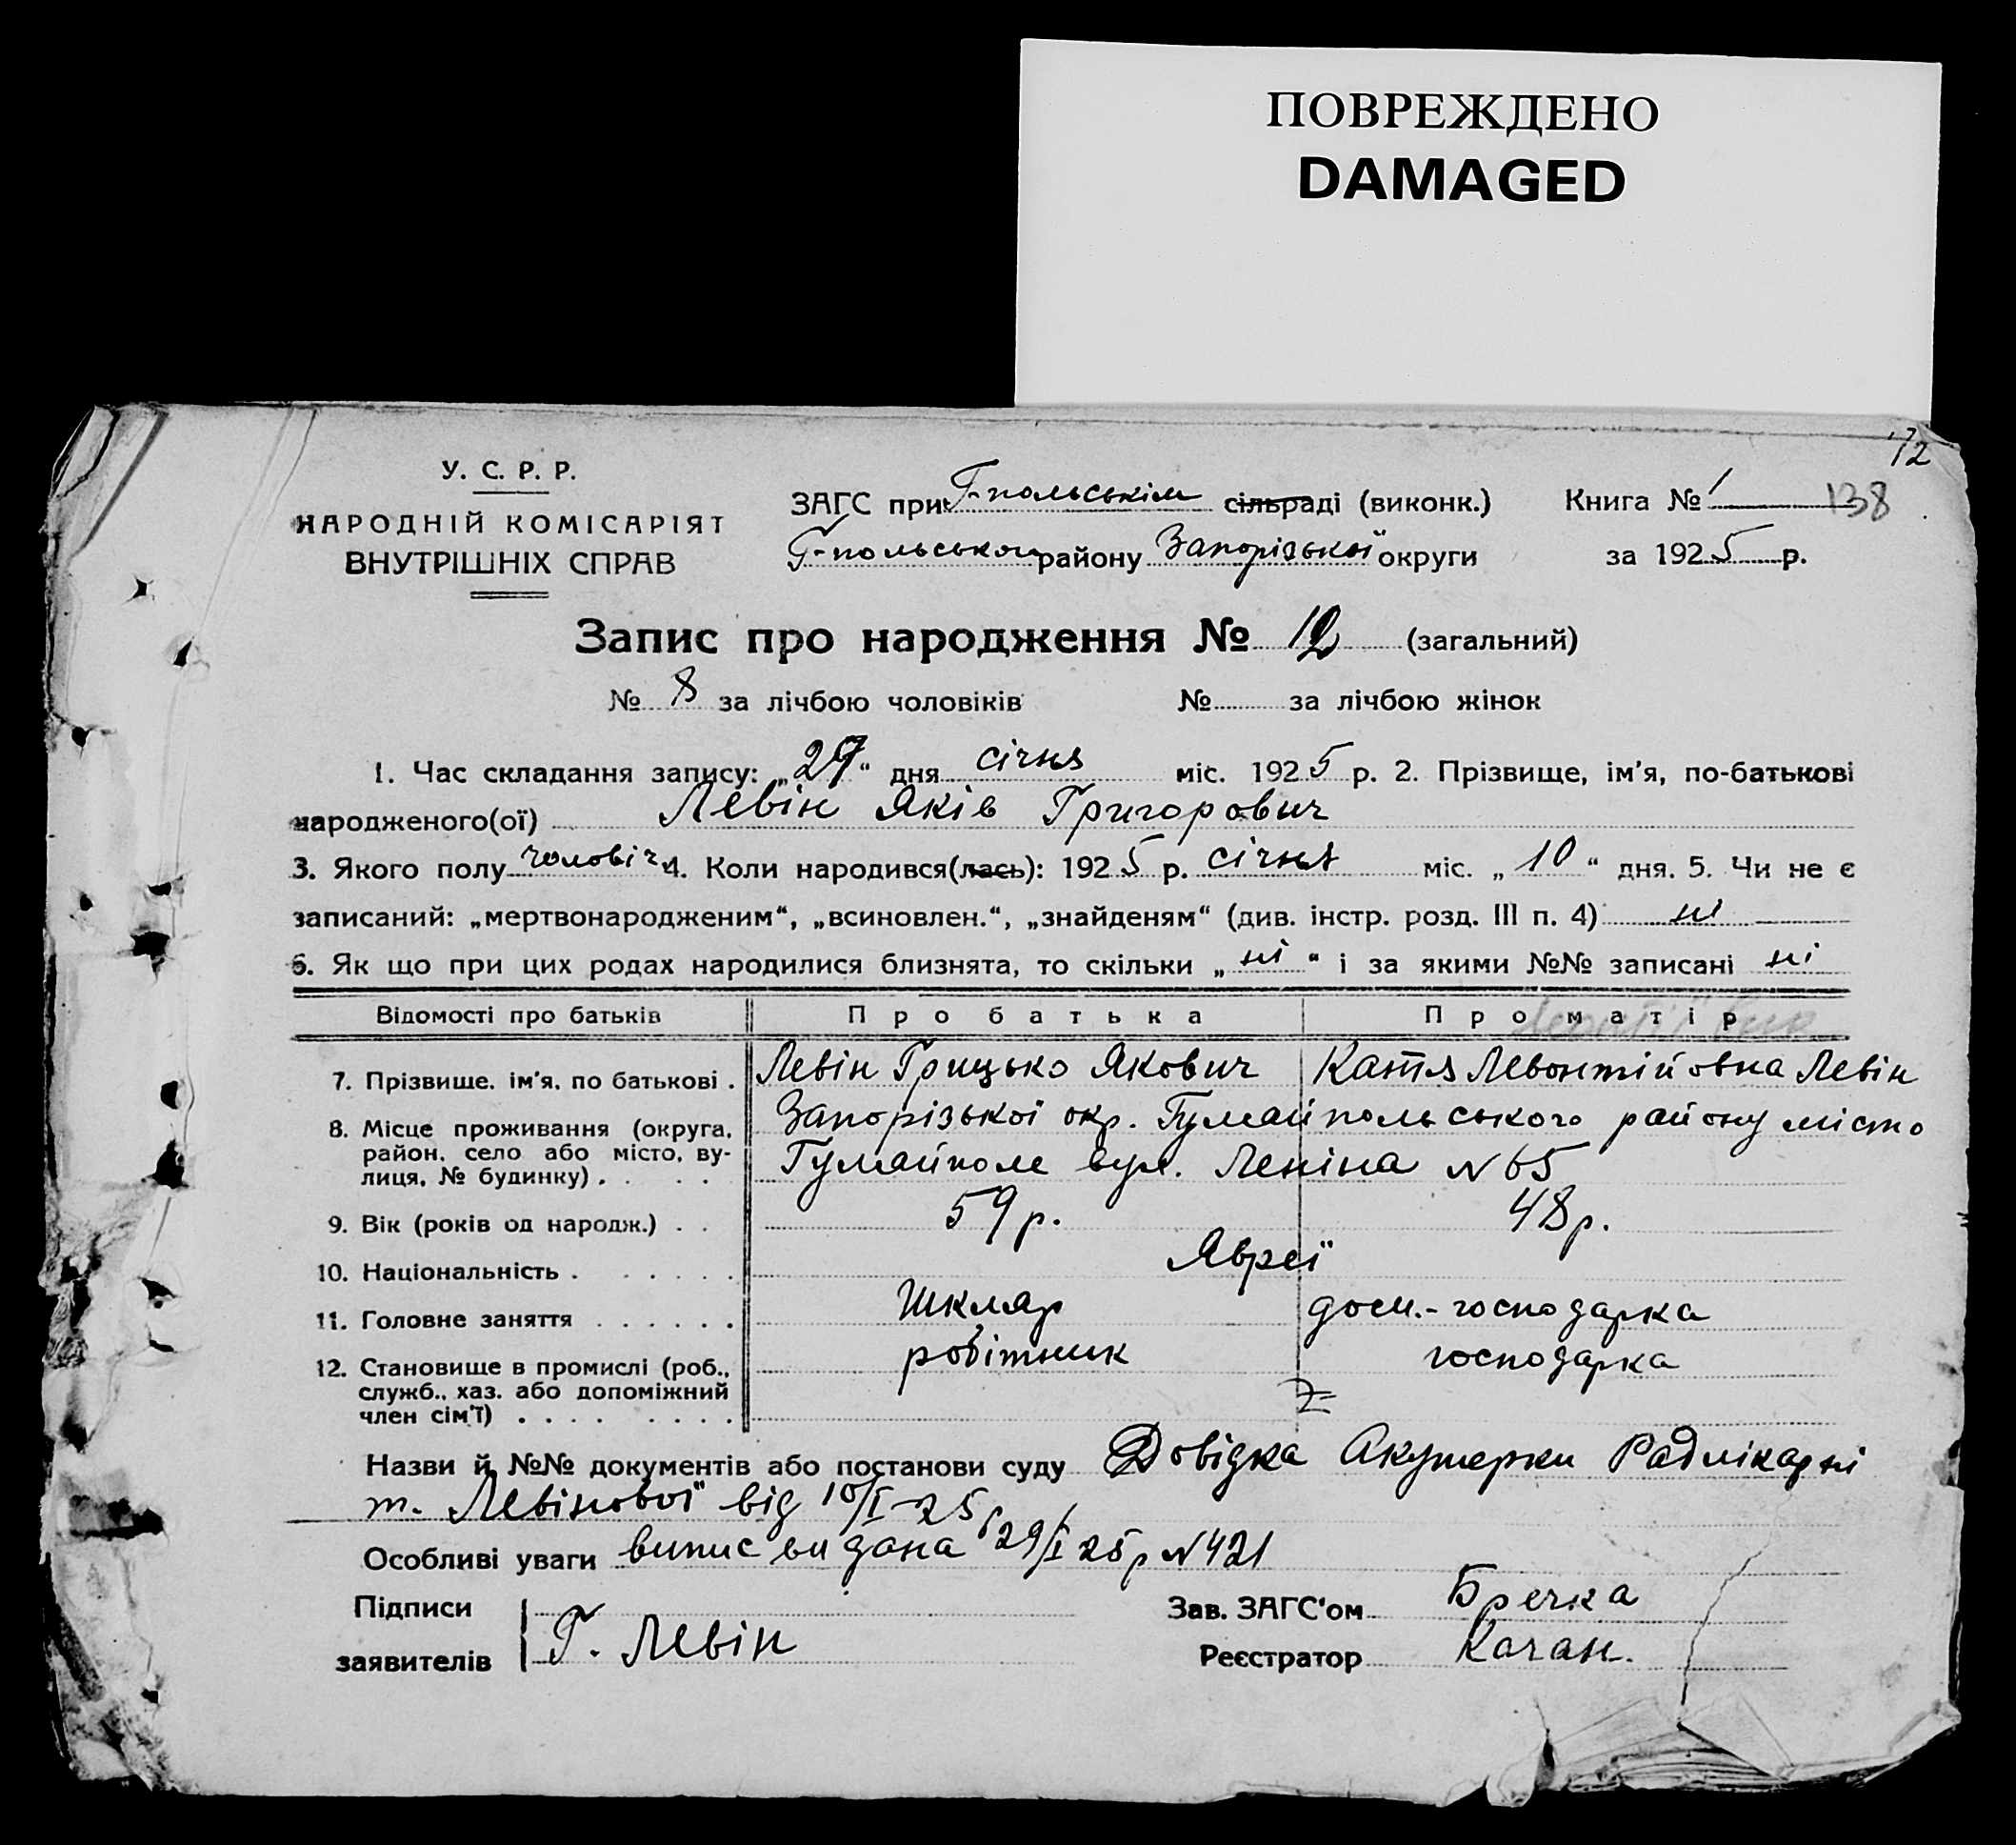 ПОВРЕЖДЕНО
DAMAGED
12
138
У. С. Р. Р.
НАРОДНІЙ КОМІСАРІЯТ
ВНУТРІШНІХ СПРАВ
ЗАГС при Г-польськім сільраді (виконк.) Книга № 1
Г-польського району Запорізької округи за 1925 р.
Запис про народження № 12 (загальний)
№ 8 за лічбою чоловіків № за лічбою жінок
1. Час складання запису: „27“ дня січня міс. 1925 р. 2. Прізвище, ім'я, по-батькові
народженого(ої) Левін Яків Григорович
3. Якого полу чоловіч. 4. Коли народився(лась): 1925 р. січня міс. „10“ дня. 5. Чи не є
записаний: „мертвонародженим“, „всиновлен.“, „знайденям“ (див. інстр. розд. III п. 4) ні
6. Як що при цих родах народилися близнята, то скільки „ні“ і за якими №№ записані ні
Відомості про батьків Про батька Про матір
7. Прізвище, ім'я, по батькові . Левін Грицько Якович Катя Левонтійовна Левін
8. Місце проживання (округа, район, село або місто, вулиця, № будинку) . . . . Запорізької окр. Гуляйпольського району місто
Гуляйполе вул. Леніна № 65
9. Вік (років од народж.) . . 59 р. 48 р.
10. Національність . . . . . . Явреї
11. Головне заняття . . . . . . Шкляр дом.-господарка
12. Становище в промислі (роб., служб., хаз. або допоміжний член сім'ї) . . . . . . . . робітник господарка
Назви й №№ документів або постанови суду Довідка Акушерки Радлікарні
т. Левінової від 10/I-25 р
Особливі уваги випис видана 29/I 25 р № 421
Підписи заявителів Г. Левін
Зав. ЗАГС'ом Бречка
Реєстратор Качан.